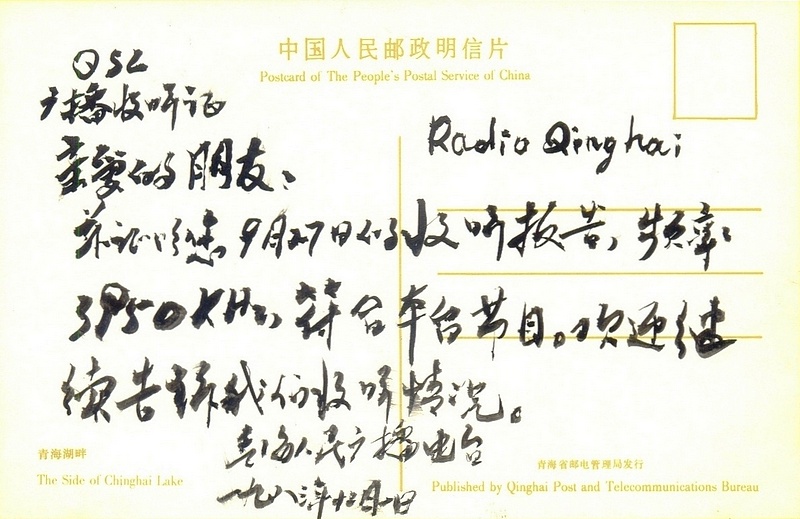 中国人民邮政明信片
Postcard of The People's Postal Service of China
QSL
广播收听证
亲爱的朋友：
Radio Qinghai
兹证明您9月27日的收听报告，频率：
3950KHz，符合本台节目。欢迎继
續告诉我们收听情况。
青海人民广播电台
一九八 年 月 日
青海湖畔
The Side of Chinghai Lake
青海省邮电管理局发行
Published by Qinghai Post and Telecommunications Bureau